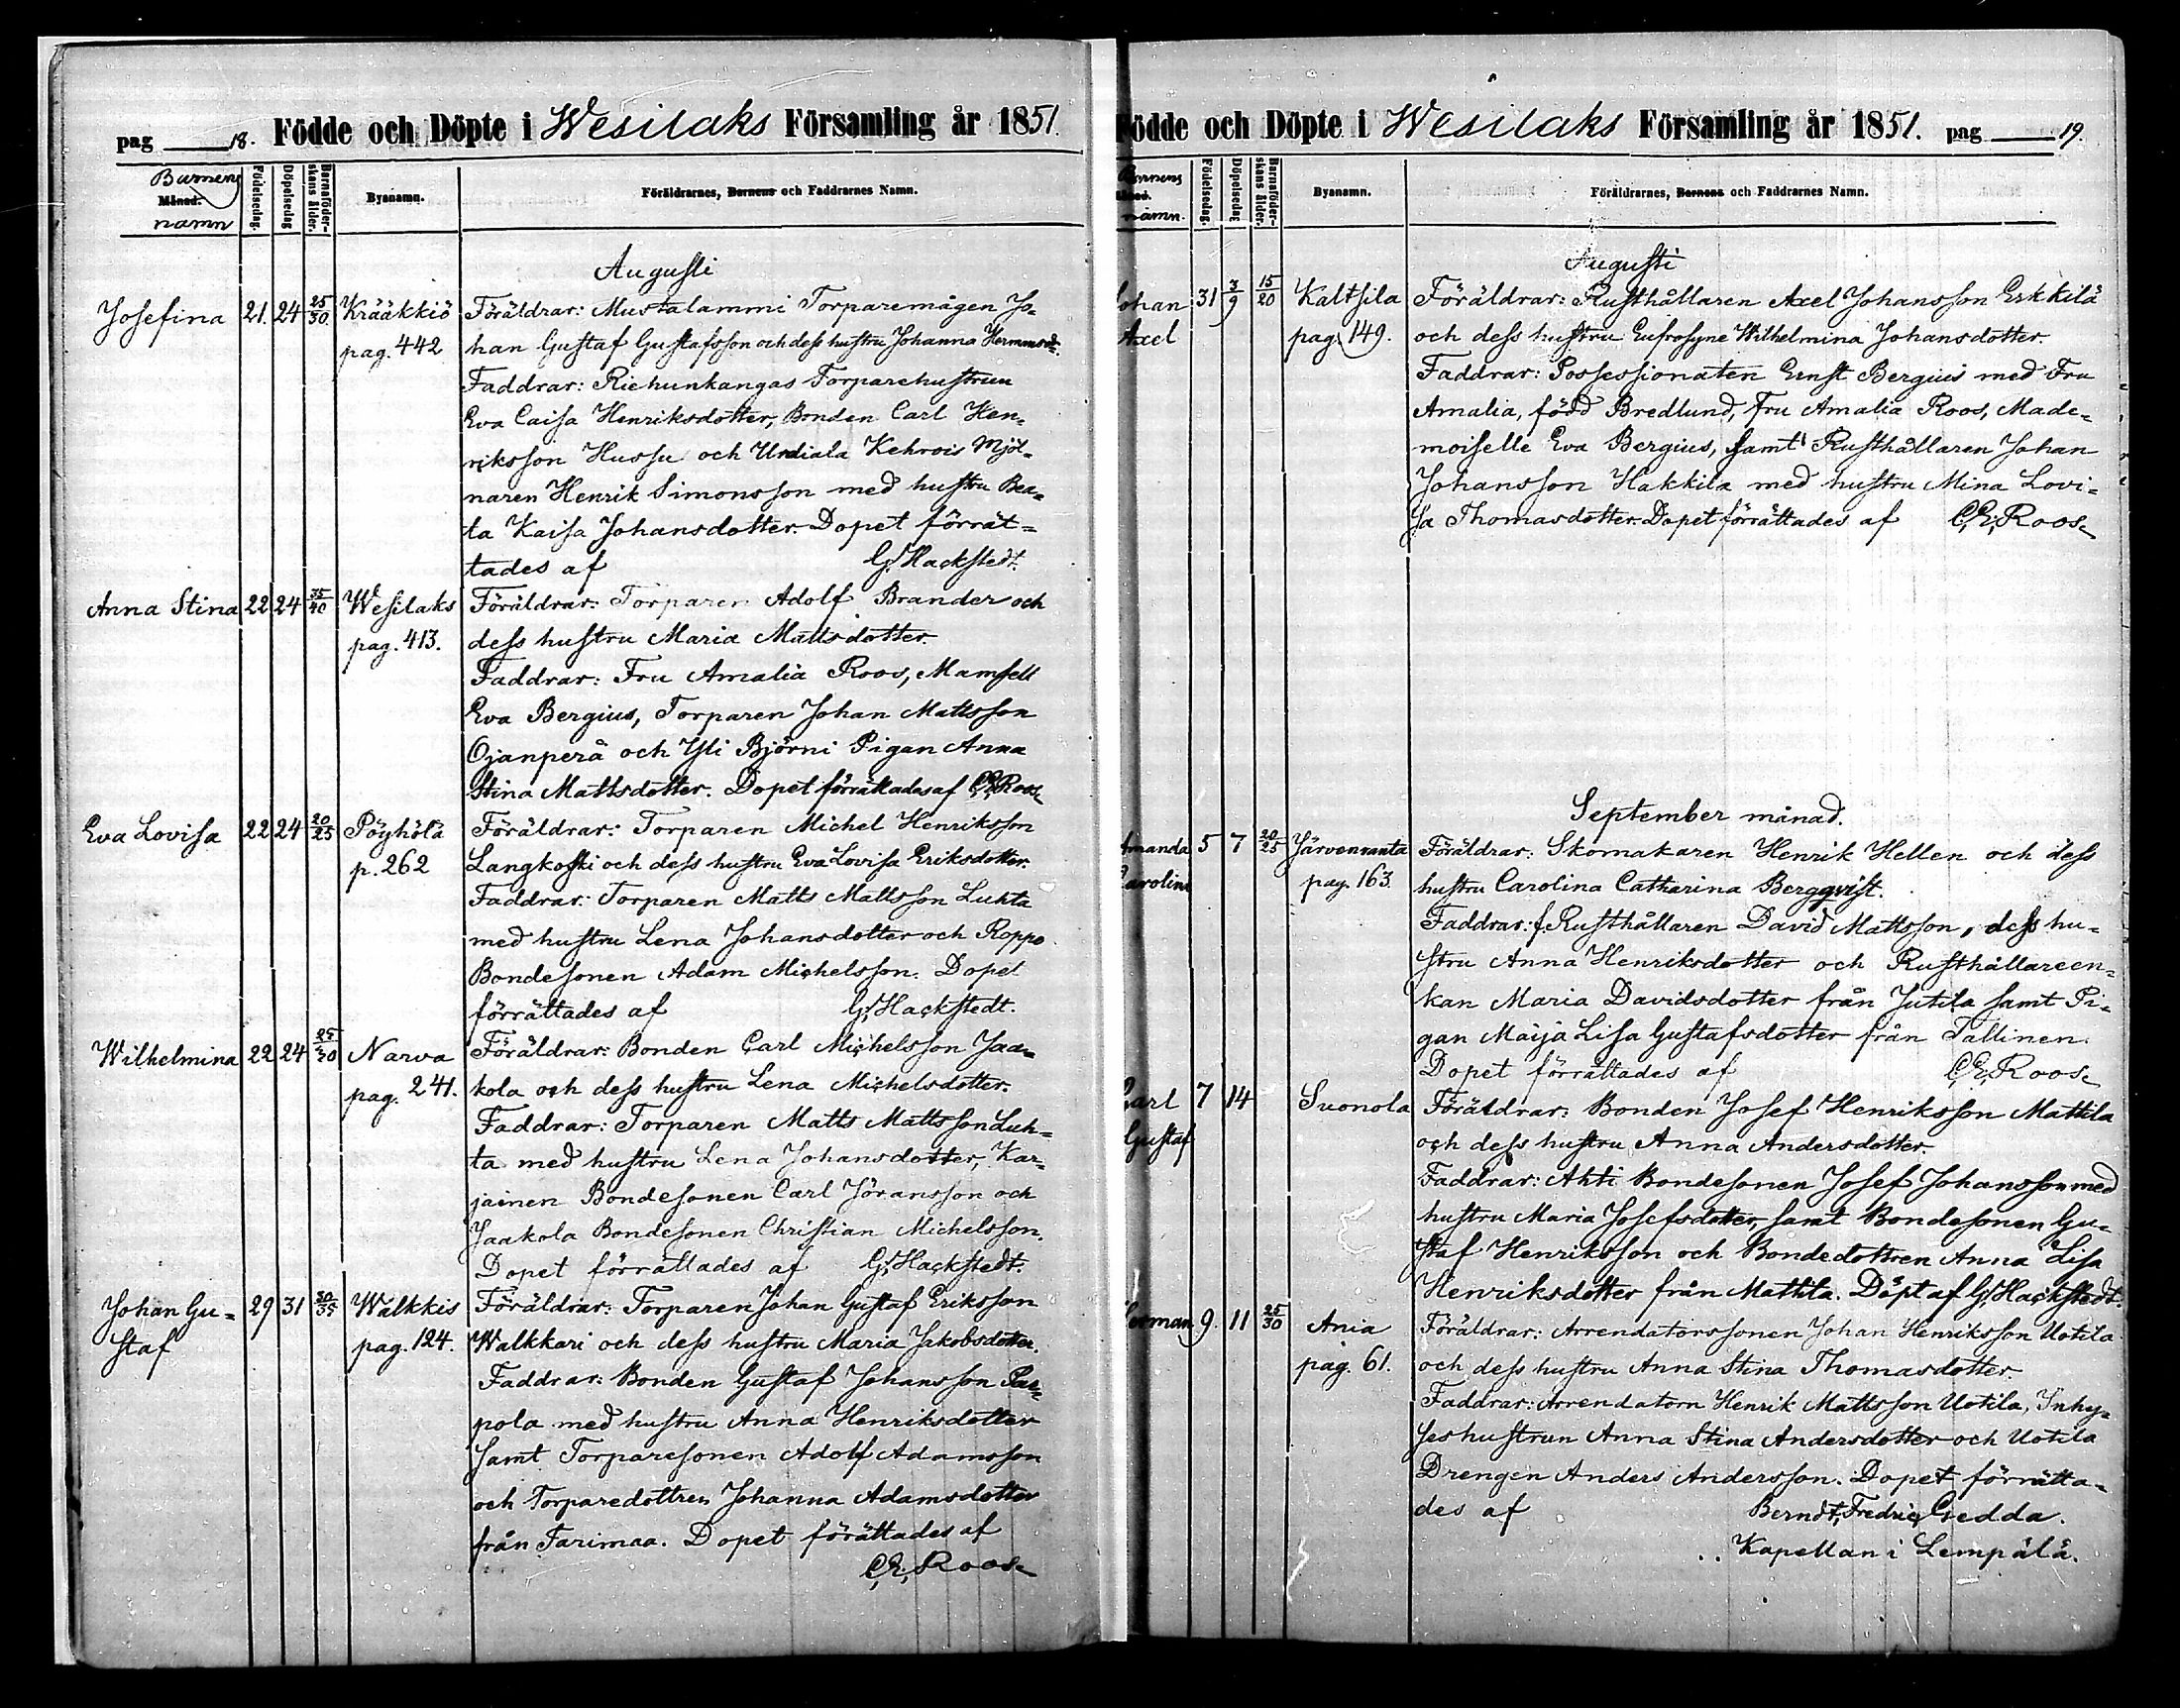 pag 18. Födde och Döpte i Wesilaks Församling år 1851.
Barnens
Månad.
namn
Födelsedag.
Döpelsedag
Barnaföder-
skans ålder.
Byanamn.
Föräldrarnes, Barnens och Faddrarnes Namn.
Augusti
Josefina 21. 24 25/30 Krääkkiö Föräldrar: Mustalammi Torparemågen Jo-
pag. 442 han Gustaf Gustafsson och dess hustru Johanna Hermansd:
Faddrar: Riehunkangas Torparehustrun
Eva Caisa Henriksdotter, Bonden Carl Hen-
riksson Hussu och Urdiala Kehrois Mjöl-
naren Henrik Simonsson med hustru Bea-
ta Kaisa Johansdotter. Dopet förrät-
tades af G. Hackstedt.
Anna Stina 22 24 35/40 Wesilaks Föräldrar: Torparen Adolf Brander och
pag. 413. dess hustru Maria Mattsdotter.
Faddrar: Fru Amalia Roos, Mamsell
Eva Bergius, Torparen Johan Mattsson
Ojanperä och Yli Björni Pigan Anna
Stina Mattsdotter. Dopet förrättades af C.E. Roos
Eva Lovisa 22 24 20/25 Pöyhölä Föräldrar: Torparen Michel Henriksson
p. 262 Langkoski och dess hustru Eva Lovisa Eriksdotter.
Faddrar: Torparen Matts Mattsson Luhta
med hustru Lena Johansdotter och Roppo
Bondesonen Adam Michelsson. Dopet
förrättades af G. Hackstedt.
Wilhelmina 22 24 25/30 Narva Föräldrar: Bonden Carl Michelsson Jaa-
pag. 241. kola och dess hustru Lena Michelsdotter.
Faddrar: Torparen Matts Mattsson Luh-
ta med hustru Lena Johansdotter, Kar-
jainen Bondesonen Carl Jöransson och
Jaakola Bondesonen Christian Michelsson.
Dopet förrättades af G. Hackstedt.
Johan Gu- 29 31 30/35 Walkkis Föräldrar: Torparen Johan Gustaf Eriksson
staf pag. 124. Walkkari och dess hustru Maria Jakobsdotter.
Faddrar: Bonden Gustaf Johansson Paa-
pola med hustru Anna Henriksdotter
samt Torparesonen Adolf Adamsson
och Torparedottren Johanna Adamsdotter
från Tarimaa. Dopet förättades af
C.E. Roos
Födde och Döpte i Wesilaks Församling år 1851. pag 19.
Barnens
Månad.
namn.
Födelsedag.
Döpelsedag
Barnaföder-
skans ålder.
Byanamn.
Föräldrarnes, Barnens och Faddrarnes Namn.
Augusti
Johan 31 3/9 15/20 Kaltsila Föräldrar: Rusthållaren Axel Johansson Erkkilä
Axel pag. 149. och dess hustru Eufrosyne Wilhelmina Johansdotter.
Faddrar: Possessionaten Ernst Bergius med Fru
Amalia, född Bredlund, Fru Amalia Roos, Made-
moiselle Eva Bergius, samt Rusthållaren Johan
Johansson Hakkila med hustru Mina Lovi-
sa Thomasdotter. Dopet förrättades af C.E. Roos
September månad.
Amanda 5 7 20/25 Järvenranta Föräldrar: Skomakaren Henrik Hellen och dess
Carolina pag. 163. hustru Carolina Catharina Bergqvist.
Faddrar: f. Rusthållaren David Mattsson, dess hu-
stru Anna Henriksdotter och Rusthållareen-
kan Maria Davidsdotter från Jutila samt Pi-
gan Maija Lisa Gustafsdotter från Tallinen.
Dopet förrättades af C.E. Roos
Carl 7 14 Suonola Föräldrar: Bonden Josef Henriksson Mattila
Gustaf och dess hustru Anna Andersdotter.
Faddrar: Ahti Bondesonen Josef Johansson med
hustru Maria Josefsdotter, samt Bondesonen Gu-
staf Henriksson och Bondedottren Anna Lisa
Henriksdotter från Mattila. Döpt af G. Hackstedt.
Herman 9. 11 25/30 Ania Föräldrar: Arrendatorssonen Johan Henriksson Uotila
pag. 61. och dess hustru Anna Stina Thomasdotter.
Faddrar: Arrendatorn Henrik Mattsson Uotila, Inhy-
seshustrun Anna Stina Andersdotter och Uotila
Drengen Anders Andersson. Dopet förrätta-
des af Berndt Fredric Gedda.
Kapellan i Lempälä.